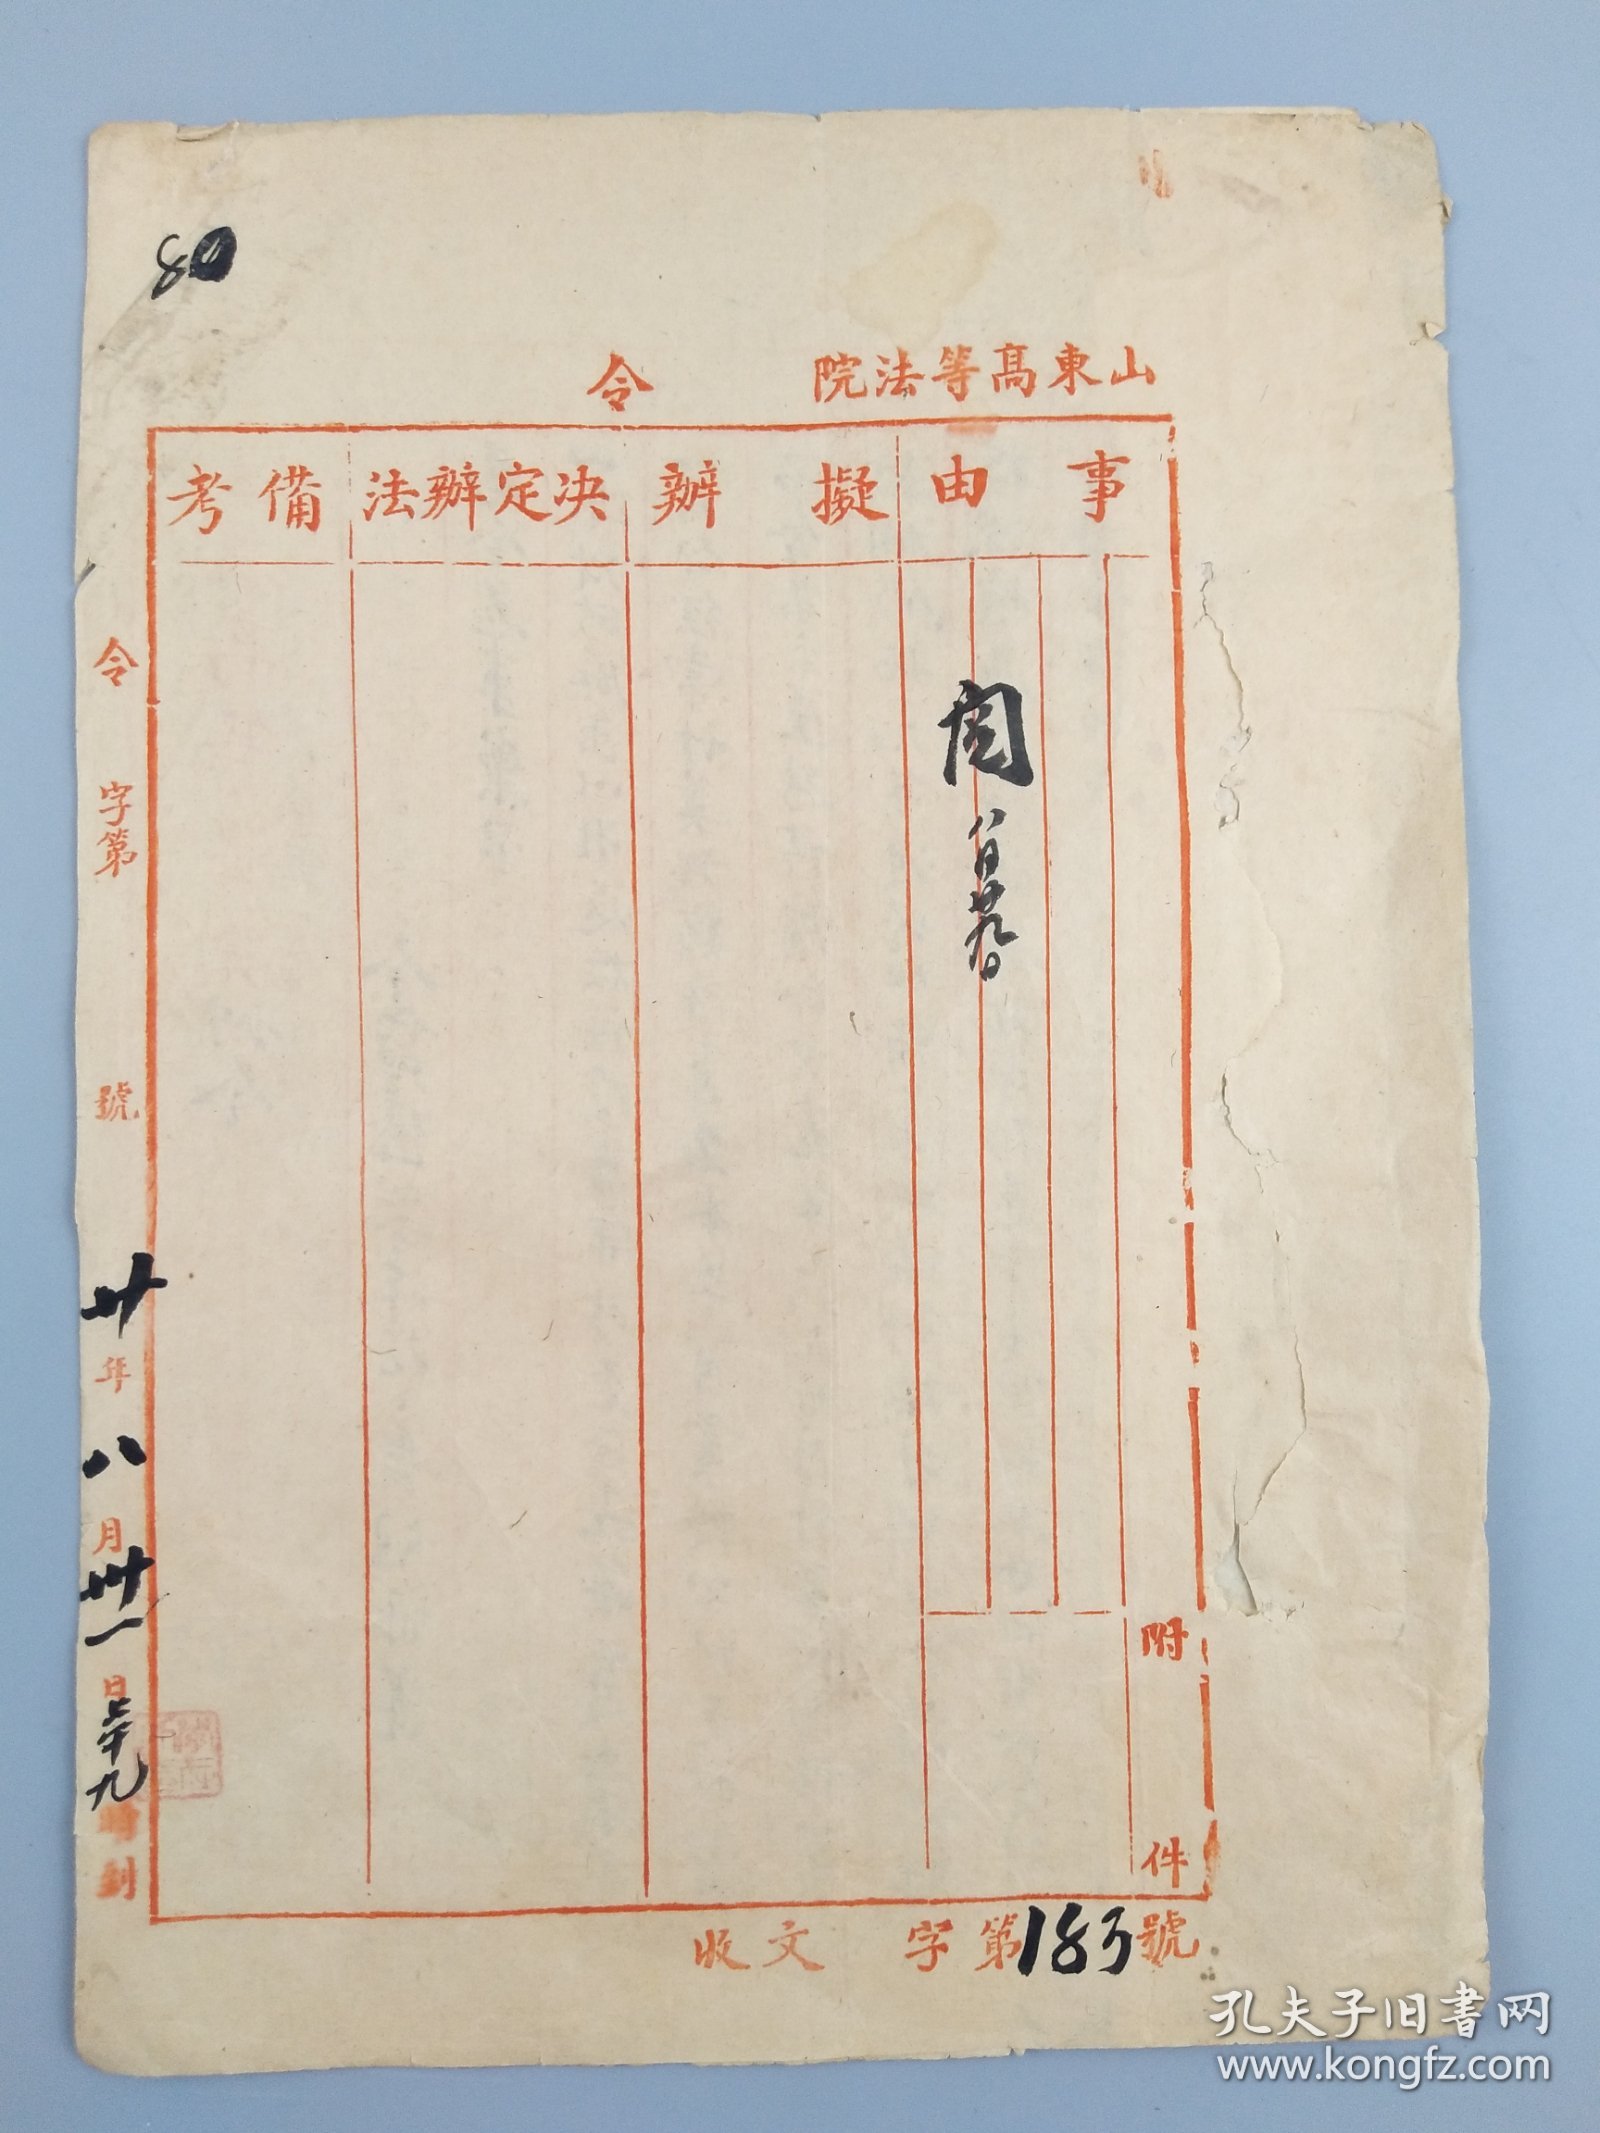 80
山東高等法院　　令
事由
擬辦
決定辦法
備考
閱
八月廿九日
附件
令　字第　號
廿年八月卅一日
收文　字第183號
孔夫子旧書网
www.kongfz.com